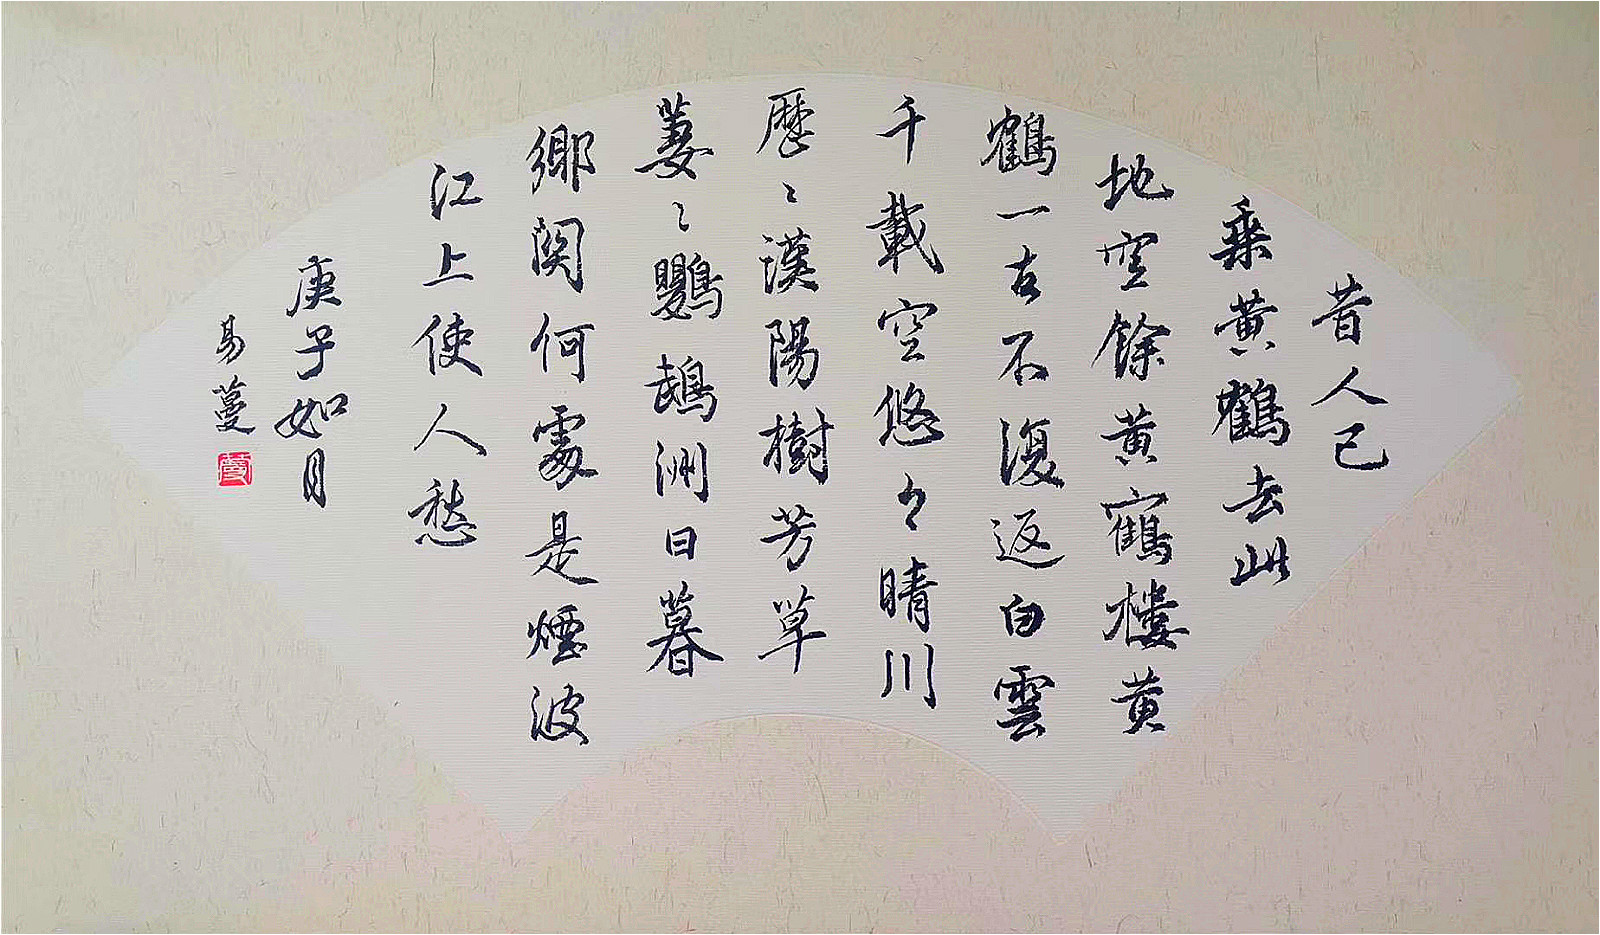 昔人已
乘黄鶴去此
地空餘黄鶴樓黄
鶴一去不復返白雲
千載空悠々晴川
歷〻漢陽樹芳草
萋〻鸚鵡洲日暮
鄉関何處是煙波
江上使人愁
庚子如月
易蔓